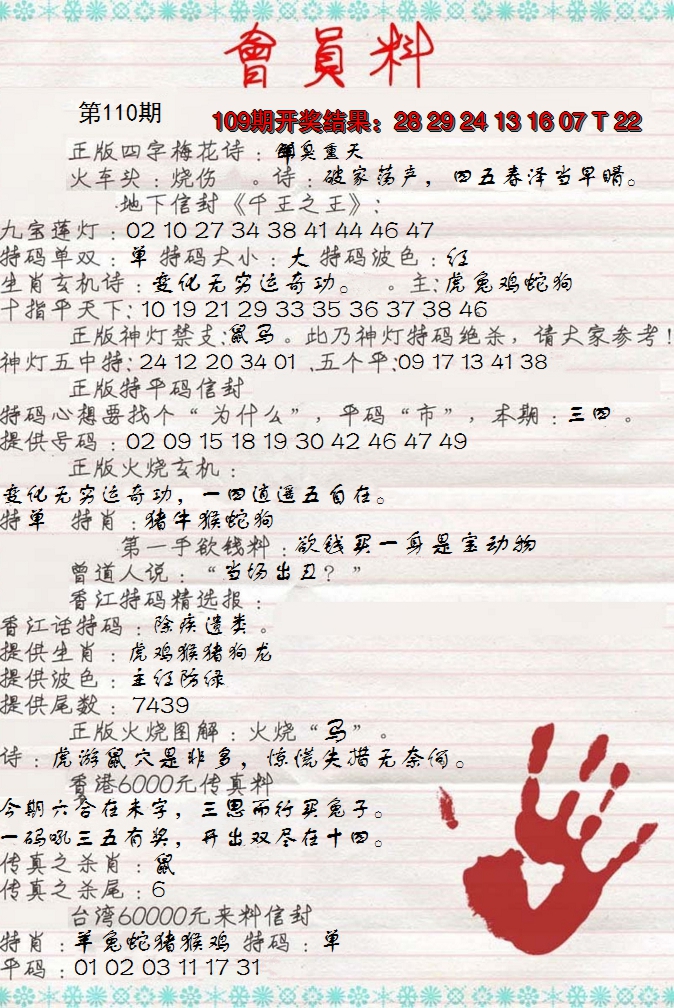 會員料
第110期
109期开奖结果：28 29 24 13 16 07 T 22
正版四字梅花诗：鲜臭熏天
火车头：烧伤 。诗：破家荡产，四五春泽当早晴。
地下信封《千王之王》：
九宝莲灯：02 10 27 34 38 41 44 46 47
特码单双：单 特码大小：大 特码波色：红
生肖玄机诗：变化无穷运奇功。 。主：虎兔鸡蛇狗
十指平天下：10 19 21 29 33 35 36 37 38 46
正版神灯禁支：鼠马。此乃神灯特码绝杀，请大家参考！
神灯五中特：24 12 20 34 01 .五个平：09 17 13 41 38
正版特平码信封
特码心想要找个“为什么”，平码“市”，本期：三四。
提供号码：02 09 15 18 19 30 42 46 47 49
正版火烧玄机：
变化无穷运奇功，一四逍遥五自在。
特单 特肖：猪牛猴蛇狗
第一手欲钱料：欲钱买一身是宝动物
曾道人说：“当场出丑？”
香江特码精选报：
香江话特码：除疾遗类。
提供生肖：虎鸡猴猪狗龙
提供波色：主红防绿
提供尾数：7439
正版火烧图解：火烧“马”。
诗：虎游鼠穴是非多，惊慌失措无奈何。
香港6000元传真料
今期六合在未字，三思而行买兔子。
一码吼三五有奖，开出双尽在十四。
传真之杀肖：鼠
传真之杀尾：6
台湾60000元来料信封
特肖：羊兔蛇猪猴鸡 特码：单
平码：01 02 03 11 17 31